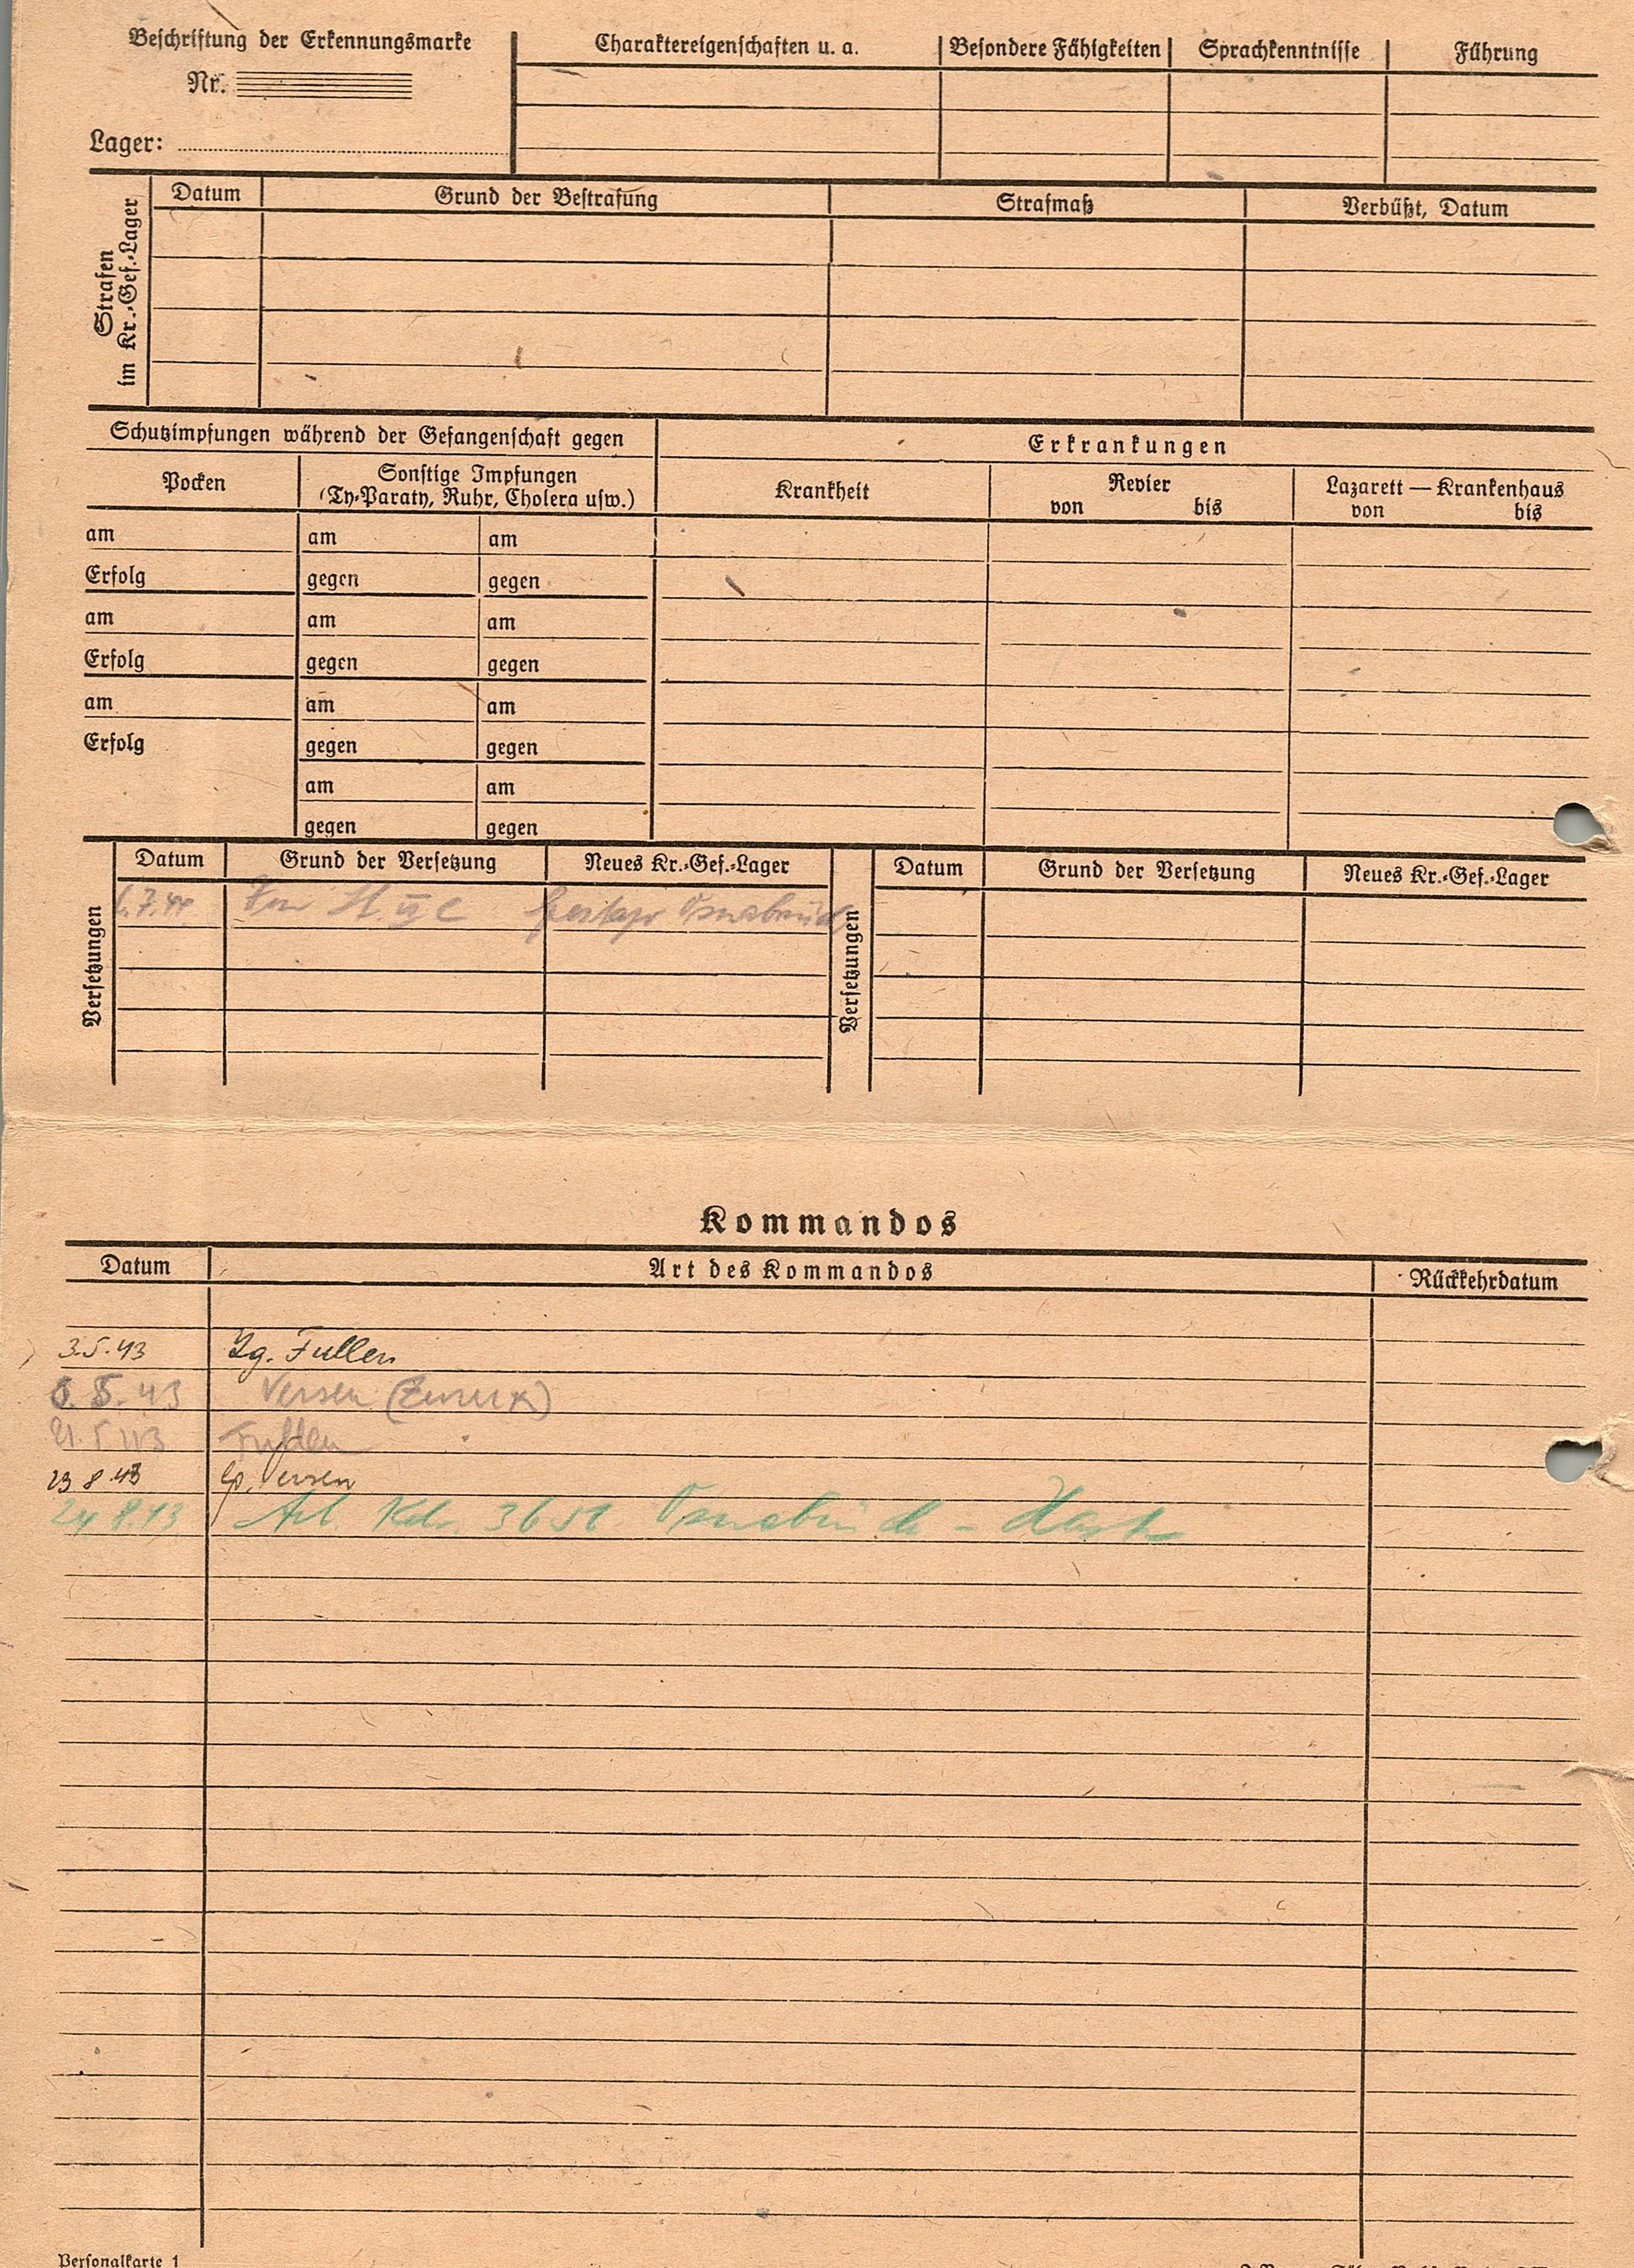 Beschriftung der Erkennungsmarke
Nr.
Lager:
Charaktereigenschaften u. a. Besondere Fähigkeiten Sprachkenntnisse Führung
Strafen
im Kr.-Gef.-Lager
Datum Grund der Bestrafung Strafmaß Verbüßt, Datum
Schutzimpfungen während der Gefangenschaft gegen
Erkrankungen
Pocken
Sonstige Impfungen
(Ty-Paraty, Ruhr, Cholera usw.)
Krankheit
Revier
von bis
Lazarett — Krankenhaus
von bis
am am am
Erfolg gegen gegen
am am am
Erfolg gegen gegen
am am am
Erfolg gegen gegen
am am
gegen gegen
Versetzungen
Datum Grund der Versetzung Neues Kr.-Gef.-Lager
7.44 VI C Gestapo Osnabrück
Versetzungen
Datum Grund der Versetzung Neues Kr.-Gef.-Lager
Kommandos
Datum Art des Kommandos Rückkehrdatum
3.5.43 Lg. Fullen
5.43 Versen (Zurück)
21.5.43 Fullen
23.8.43 Versen
24.8.43 Arb. Kdo. Osnabrück - Haste
Personalkarte 1